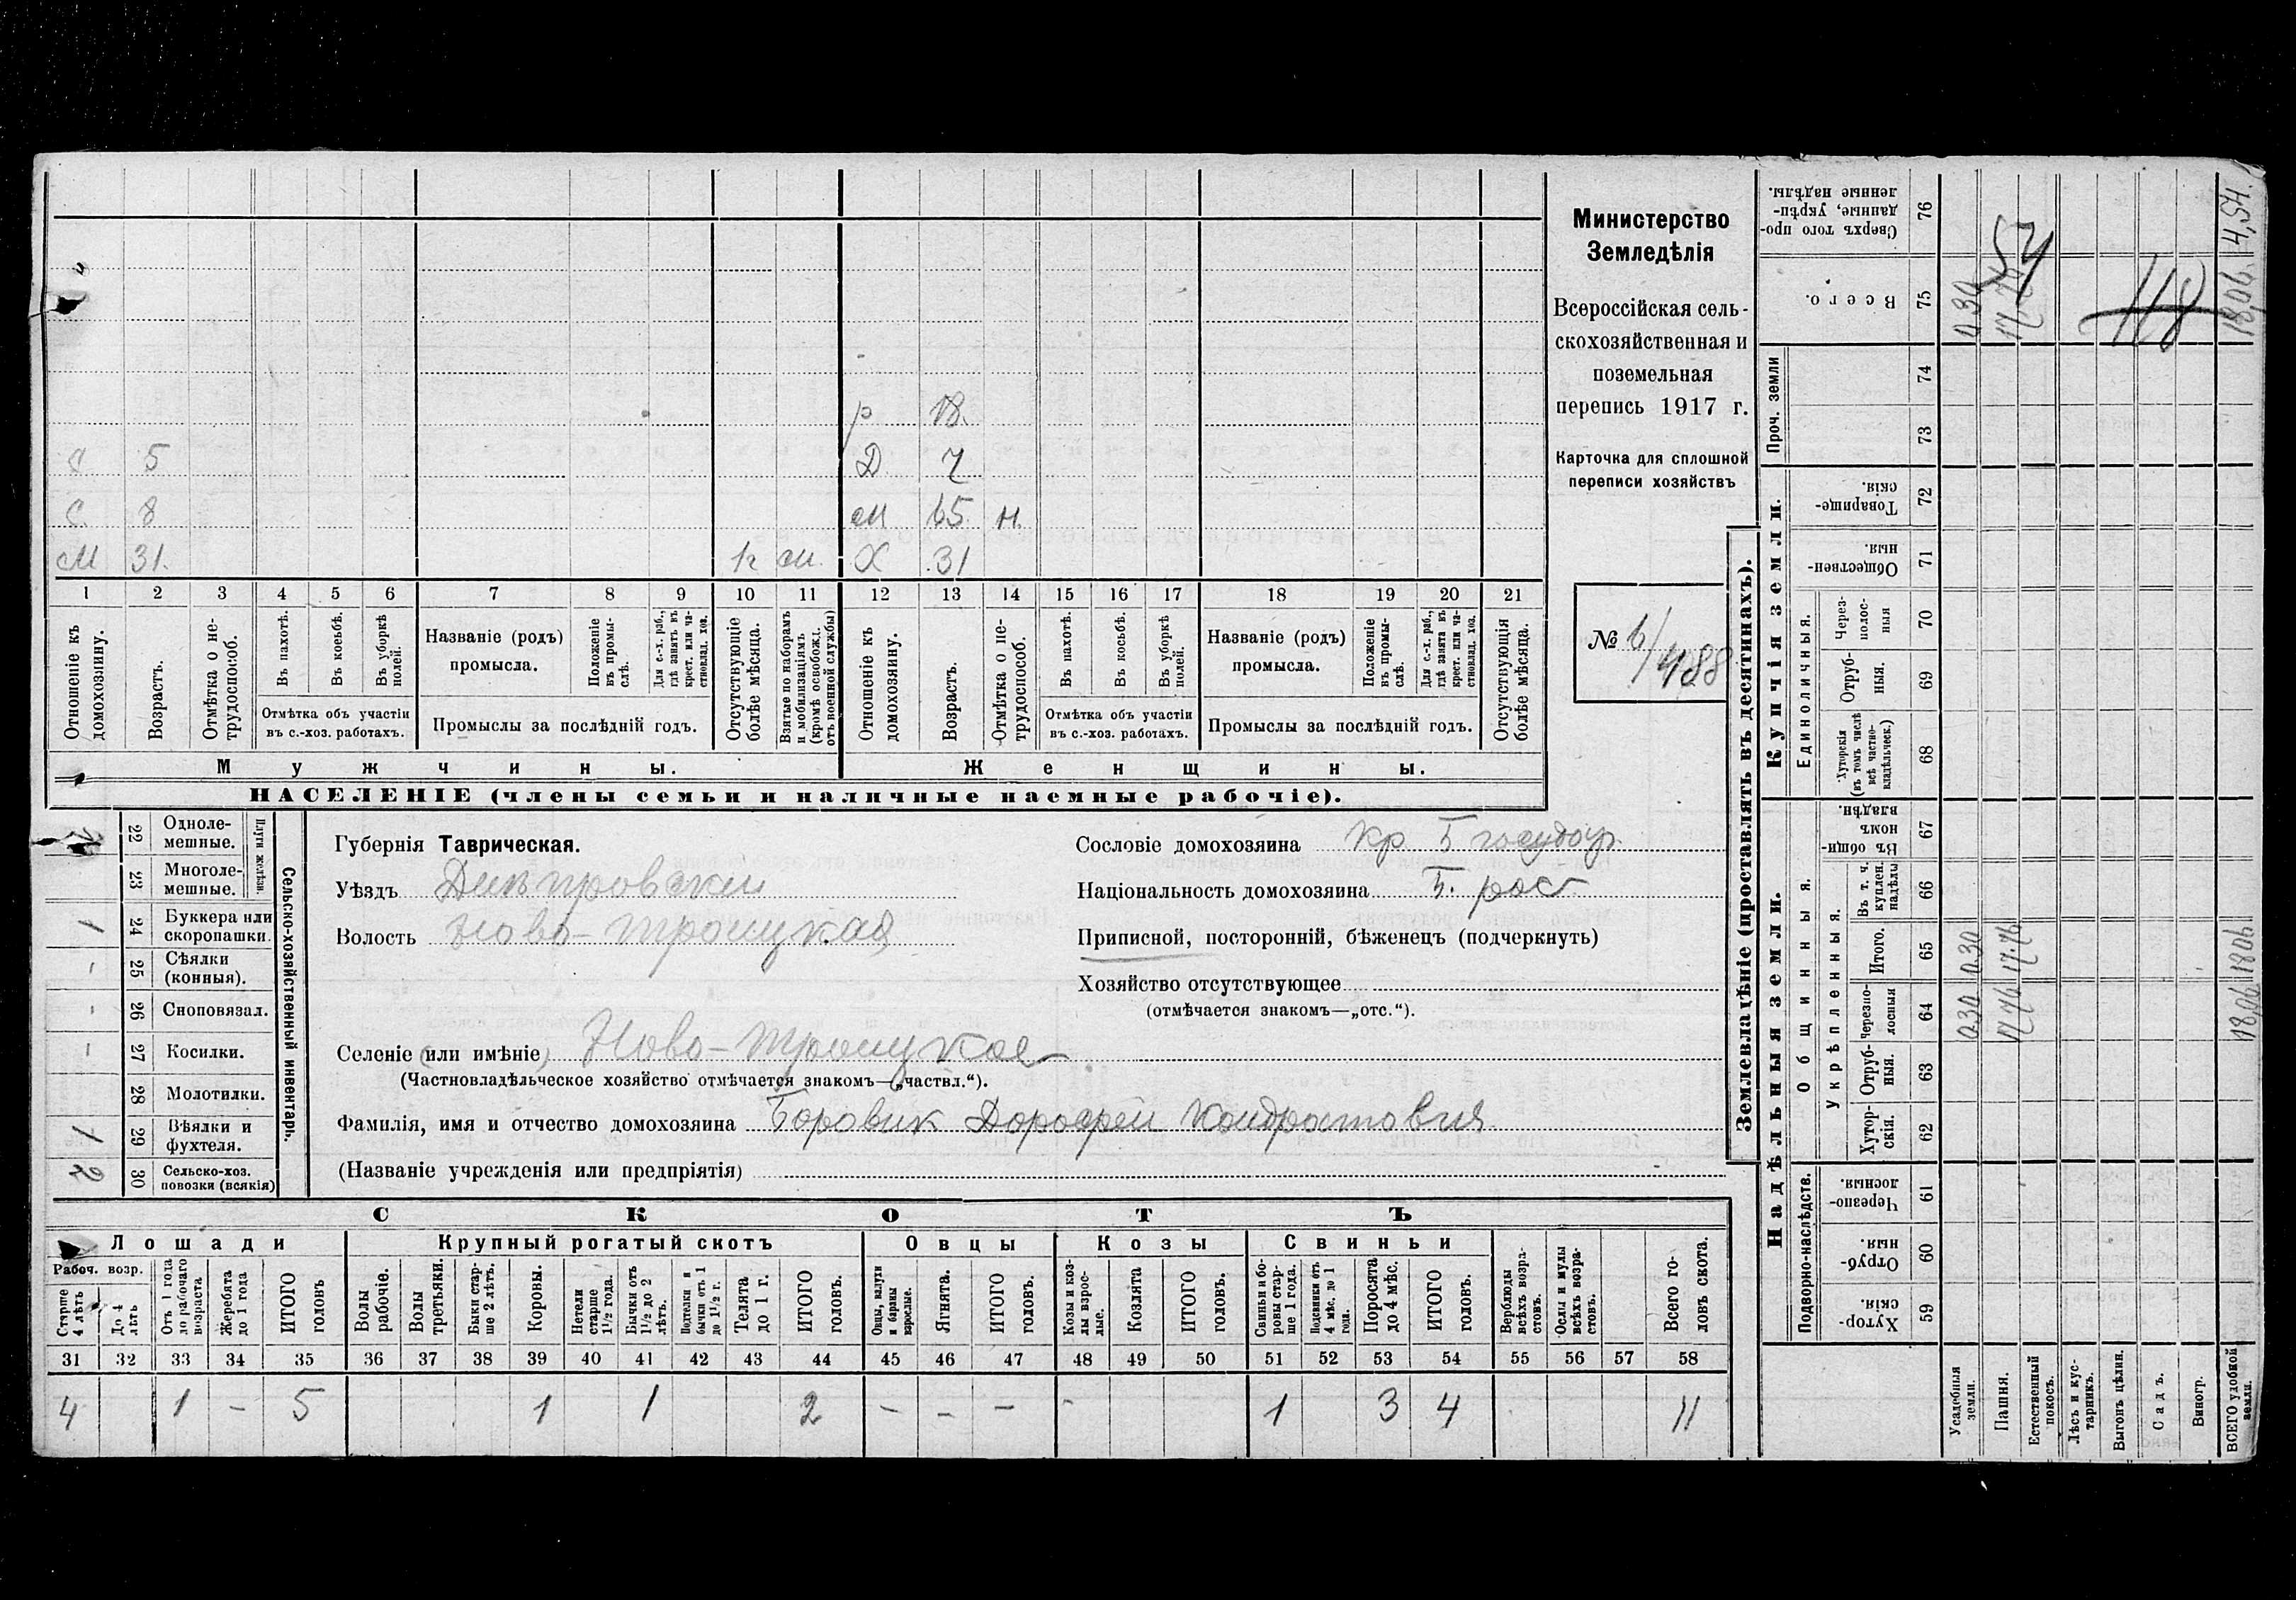 р 18.
С 5 Д 7
С. 8 м 65 н.
М 31. Х 31
1 2 3 4 5 6 7 8 9 10 11 12 13 14 15 16 17 18 19 20 21
Отношеніе къ домохозяину.
Возрастъ.
Отмѣтка о не-трудоспособ.
Въ пахотѣ.
Въ косьбѣ.
Въ уборкѣ полей.
Отмѣтка объ участіи
въ с.-хоз. работахъ.
Названіе (родъ)
промысла.
Положеніе въ промы-слѣ.
Для с.-х. раб., гдѣ занятъ въ крест. или ча-стновлад. хоз.
Промыслы за послѣдній годъ.
Отсутствующіе болѣе мѣсяца.
Взятые по наборамъ и мобилизаціямъ (кромѣ освобожд. отъ военной службы)
Отношеніе къ домохозяину.
Возрастъ.
Отмѣтка о не-трудоспособ.
Въ пахотѣ.
Въ косьбѣ.
Въ уборкѣ полей.
Отмѣтка объ участіи
въ с.-хоз. работахъ.
Названіе (родъ)
промысла.
Положеніе въ промы-слѣ.
Для с.-х. раб., гдѣ занята въ крест. или ча-стновлад. хоз.
Промыслы за послѣдній годъ.
Отсутствующія болѣе мѣсяца.
Мужчины.
Женщины.
НАСЕЛЕНІЕ (члены семьи и наличные наемные рабочіе).
Министерство
Земледѣлія
Всероссійская сель-
скохозяйственная и
поземельная
перепись 1917 г.
Карточка для сплошной
переписи хозяйствъ
№ 6/488
Сельско-хозяйственный инвентарь.
Плуги желѣзн.
22 Одноле-мешные.
23 Многоле-мешные.
1 24 Буккера или скоропашки.
- 25 Сѣялки (конныя).
- 26 Сноповязал.
- 27 Косилки.
28 Молотилки.
1 29 Вѣялки и фухтеля.
2 30 Сельско-хоз. повозки (всякія)
Губернія Таврическая.
Уѣздъ Днѣпровскій
Волость Ново-Троицкая
Сословіе домохозяина кр. б государ.
Національность домохозяина б. рос
Приписной, посторонній, бѣженецъ (подчеркнуть)
Хозяйство отсутствующее
(отмѣчается знакомъ—„отс.“).
Селеніе (или имѣніе) Ново-Троицкое
(Частновладѣльческое хозяйство отмѣчается знакомъ—„частвл.“).
Фамилія, имя и отчество домохозяина Боровик Дорофей Кондратович
(Названіе учрежденія или предпріятія)
СКОТЪ
Лошади
Крупный рогатый скотъ
Овцы
Козы
Свиньи
Рабоч. возр.
Старше 4 лѣтъ
До 4 лѣтъ
Отъ 1 года до рабочаго возраста
Жеребята до 1 года
ИТОГО головъ
Волы рабочіе.
Волы третьяки.
Быки стар-ше 2 лѣтъ.
Коровы.
Нетели старше 1 1/2 года.
Бычки отъ 1 1/2 до 2 лѣтъ.
Подтелки и бычки отъ 1 до 1 1/2 г.
Телята до 1 г.
ИТОГО головъ.
Овцы, валухи и бараны взрослые.
Ягнята.
ИТОГО головъ.
Козы и коз-лы взрос-лые.
Козлята
ИТОГО головъ.
Свиньи и бо-ровы стар-ше 1 года.
Подсвинки отъ 4 мѣс. до 1 года.
Поросята до 4 мѣс.
ИТОГО головъ.
Верблюды всѣхъ возра-стовъ.
Ослы и мулы всѣхъ возра-стовъ.
Всего го-ловъ скота.
31 32 33 34 35 36 37 38 39 40 41 42 43 44 45 46 47 48 49 50 51 52 53 54 55 56 57 58
4 1 - 5 1 1 2 - - - - 1 3 4 11
Землевладѣніе (проставлять въ десятинахъ).
Надѣльныя земли.
Купчія земли.
Проч. земли
Подворно-наслѣдств.
Общинныя.
Укрѣпленныя.
Единоличныя.
Хутор-скія. 59
Отруб-ныя. 60
Черезпо-лосныя. 61
Хутор-скія. 62
Отруб-ныя. 63
Черезпо-лосныя 64
Итого. 65
Въ т. ч. куплен. надѣлы 66
Въ общи-номъ владѣн. 67
Хуторскія (въ томъ числѣ всѣ частно-владѣльческ.) 68
Отруб-ныя. 69
Через-полос-ныя 70
Обществен-ныя. 71
Товарище-скія. 72
73
74
Всего. 75
Сверхъ того про-данные, укрѣп-ленные надѣлы. 76
Усадебныя земли. 0.30 0.30 0.30
Пашня. 17.76 17.76
54
Естественный покосъ.
Лѣсъ и кус-тарникъ.
Выгонъ цѣлин.
118
Садъ.
Виногр.
ВСЕГО удобной земли. 18,06 18,06 18,06 4,54.